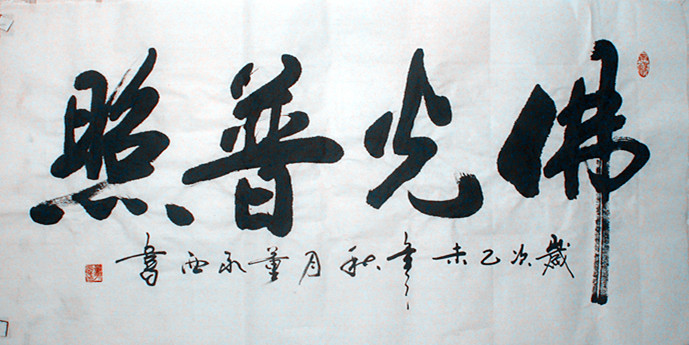 佛光普照
歲次乙未年秋月董永西書